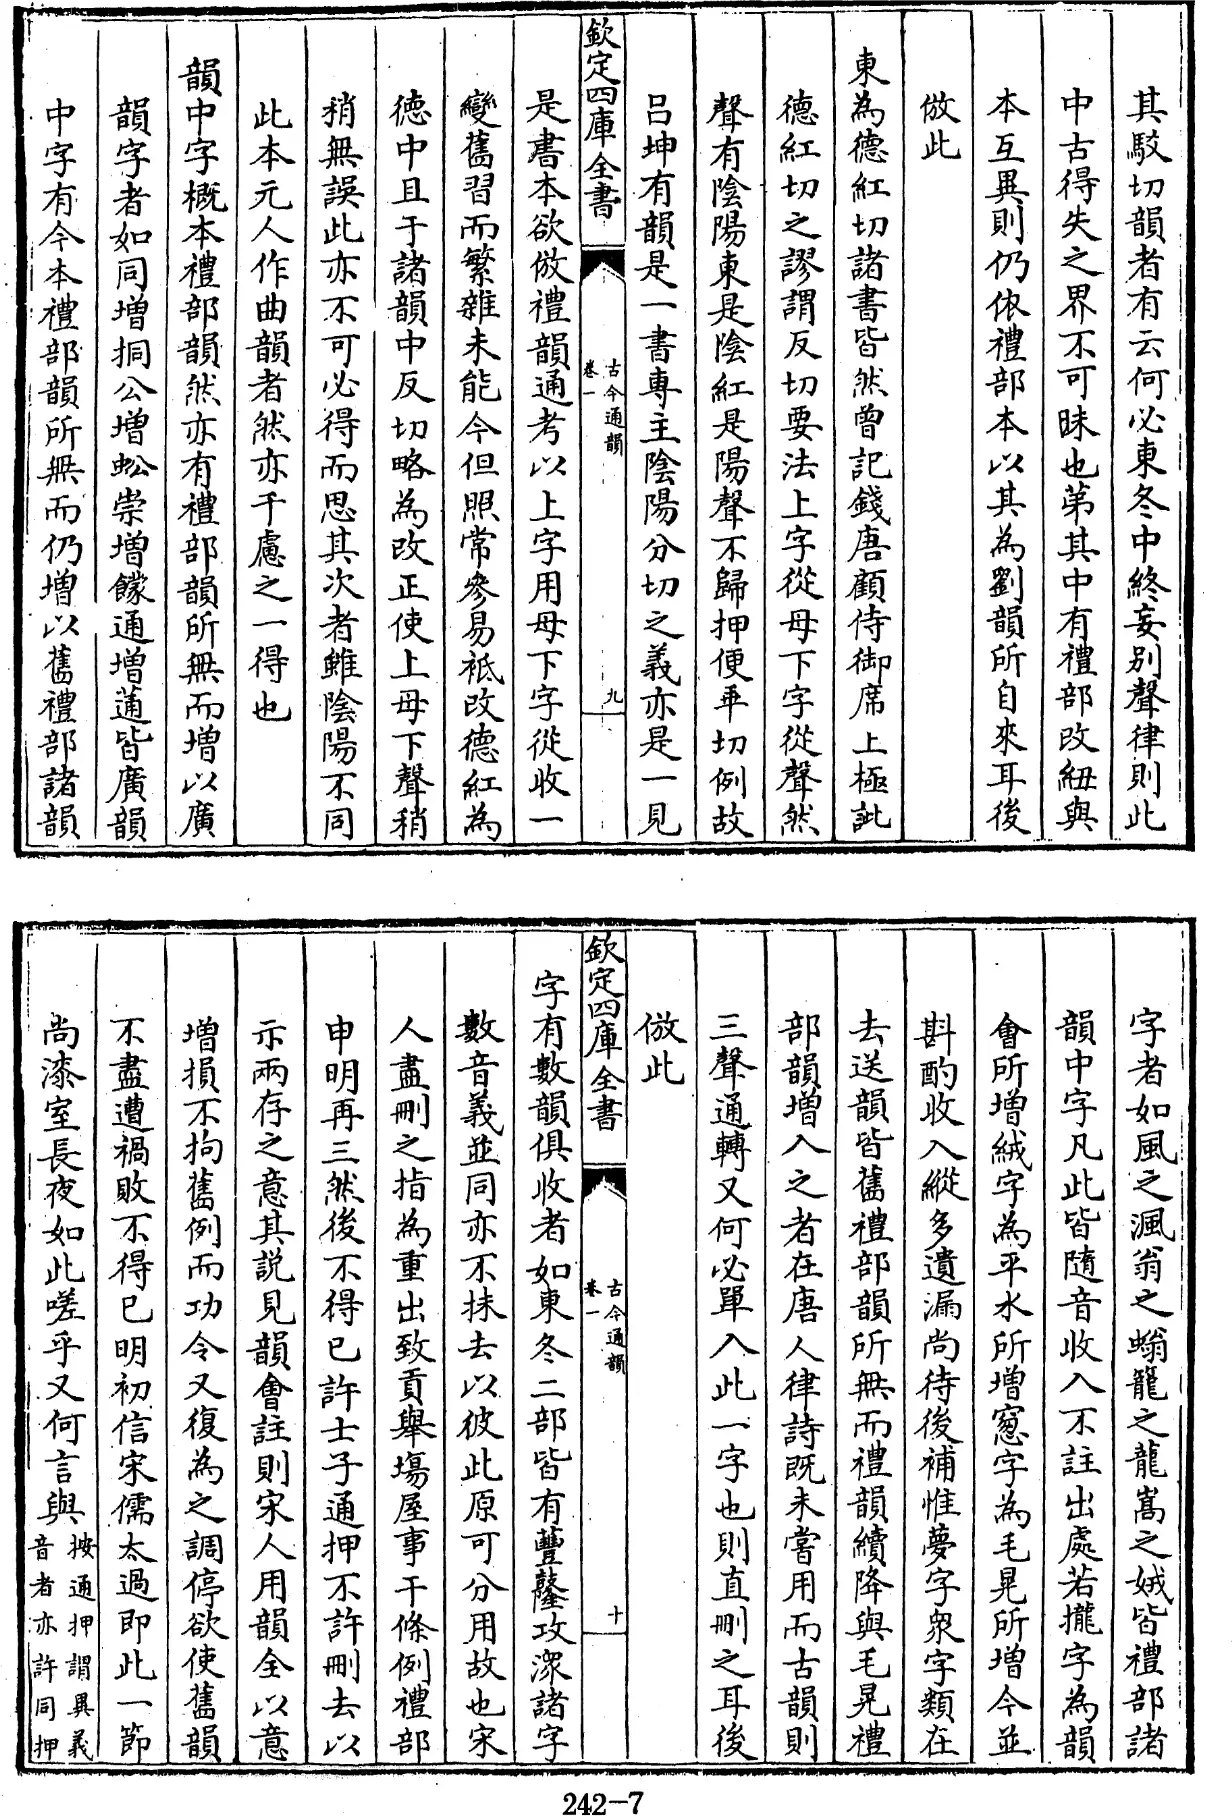 其駁切韻者有云何必東冬中終妄別聲律則此
中古得失之界不可昧也第其中有禮部改紐與
本互異則仍依禮部本以其為劉韻所自來耳後
倣此
東為德紅切諸書皆然曾記錢唐顧侍御席上極訿
德紅切之謬謂反切要法上字從母下字從聲然
聲有陰陽東是陰紅是陽聲不歸押便乖切例故
呂坤有韻是一書專主陰陽分切之義亦是一見
欽定四庫全書
古今通韻
卷一
九
是書本欲倣禮韻通考以上字用母下字從收一
變舊習而繁雜未能今但照常參易祗改德紅為
德中且于諸韻中反切略為改正使上母下聲稍
稍無誤此亦不可必得而思其次者雖陰陽不同
此本元人作曲韻者然亦千慮之一得也
韻中字概本禮部韻然亦有禮部韻所無而增以廣
韻字者如同增挏公增蚣崇增饛通增蓪皆廣韻
中字有今本禮部韻所無而仍增以舊禮部諸韻
字者如風之渢翁之螉籠之龍嵩之娀皆禮部諸
韻中字凡此皆隨音收入不註出處若攏字為韻
會所增絨字為平水所增窻字為毛晃所增今並
斟酌收入縱多遺漏尚待後補惟夢字衆字類在
去送韻皆舊禮部韻所無而禮韻續降與毛晃禮
部韻增入之者在唐人律詩既未嘗用而古韻則
三聲通轉又何必單入此一字也則直刪之耳後
倣此
欽定四庫全書
古今通韻
卷一
十
字有數韻俱收者如東冬二部皆有蘴鼟攻潨諸字
數音義並同亦不抹去以彼此原可分用故也宋
人盡刪之指為重出致貢舉塲屋事干條例禮部
申明再三然後不得已許士子通押不許刪去以
示兩存之意其説見韻會註則宋人用韻全以意
增損不拘舊例而功令又復為之調停欲使舊韻
不盡遭禍敗不得已明初信宋儒太過即此一節
尚漆室長夜如此嗟乎又何言與
按通押謂異義
音者亦許同押
242-7